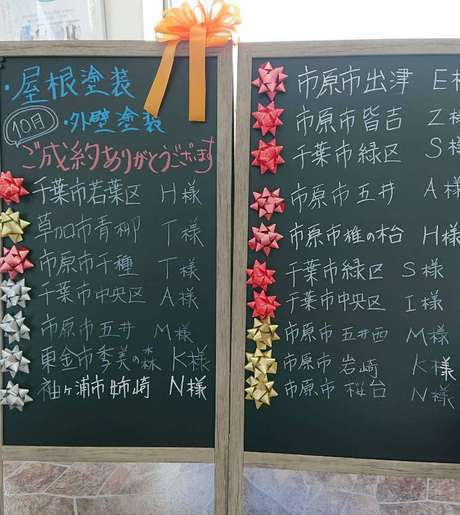 ・屋根塗装
10月
・外壁塗装
ご成約ありがとうございます
千葉市若葉区 H様
草加市青柳 T様
市原市千種 T様
千葉市中央区 A様
市原市五井 M様
東金市季美の森 K様
袖ヶ浦市姉崎 N様
市原市出津 E様
市原市皆吉 Z様
千葉市緑区 S様
市原市五井 A様
市原市椎の木台 H様
千葉市緑区 S様
千葉市中央区 I様
市原市五井西 M様
市原市岩崎 K様
市原市桜台 N様